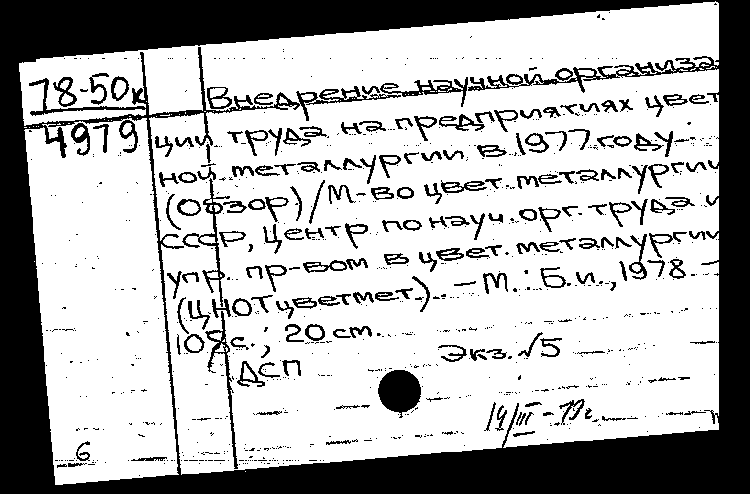 78-50к
4979
Внедрение научной организа-
ции труда на предприятиях цвет
ной металлургии в 1977 году
(Обзор) / М-во цвет. металлургии
СССР, Центр по науч. орг. труда и
упр. пр-вом в цвет. металлургии
(ЦНОТцветмет). – М.: Б.и., 1978. –
108с.; 20 cm.
ДСП
Экз. √5
14/III-79г.
6